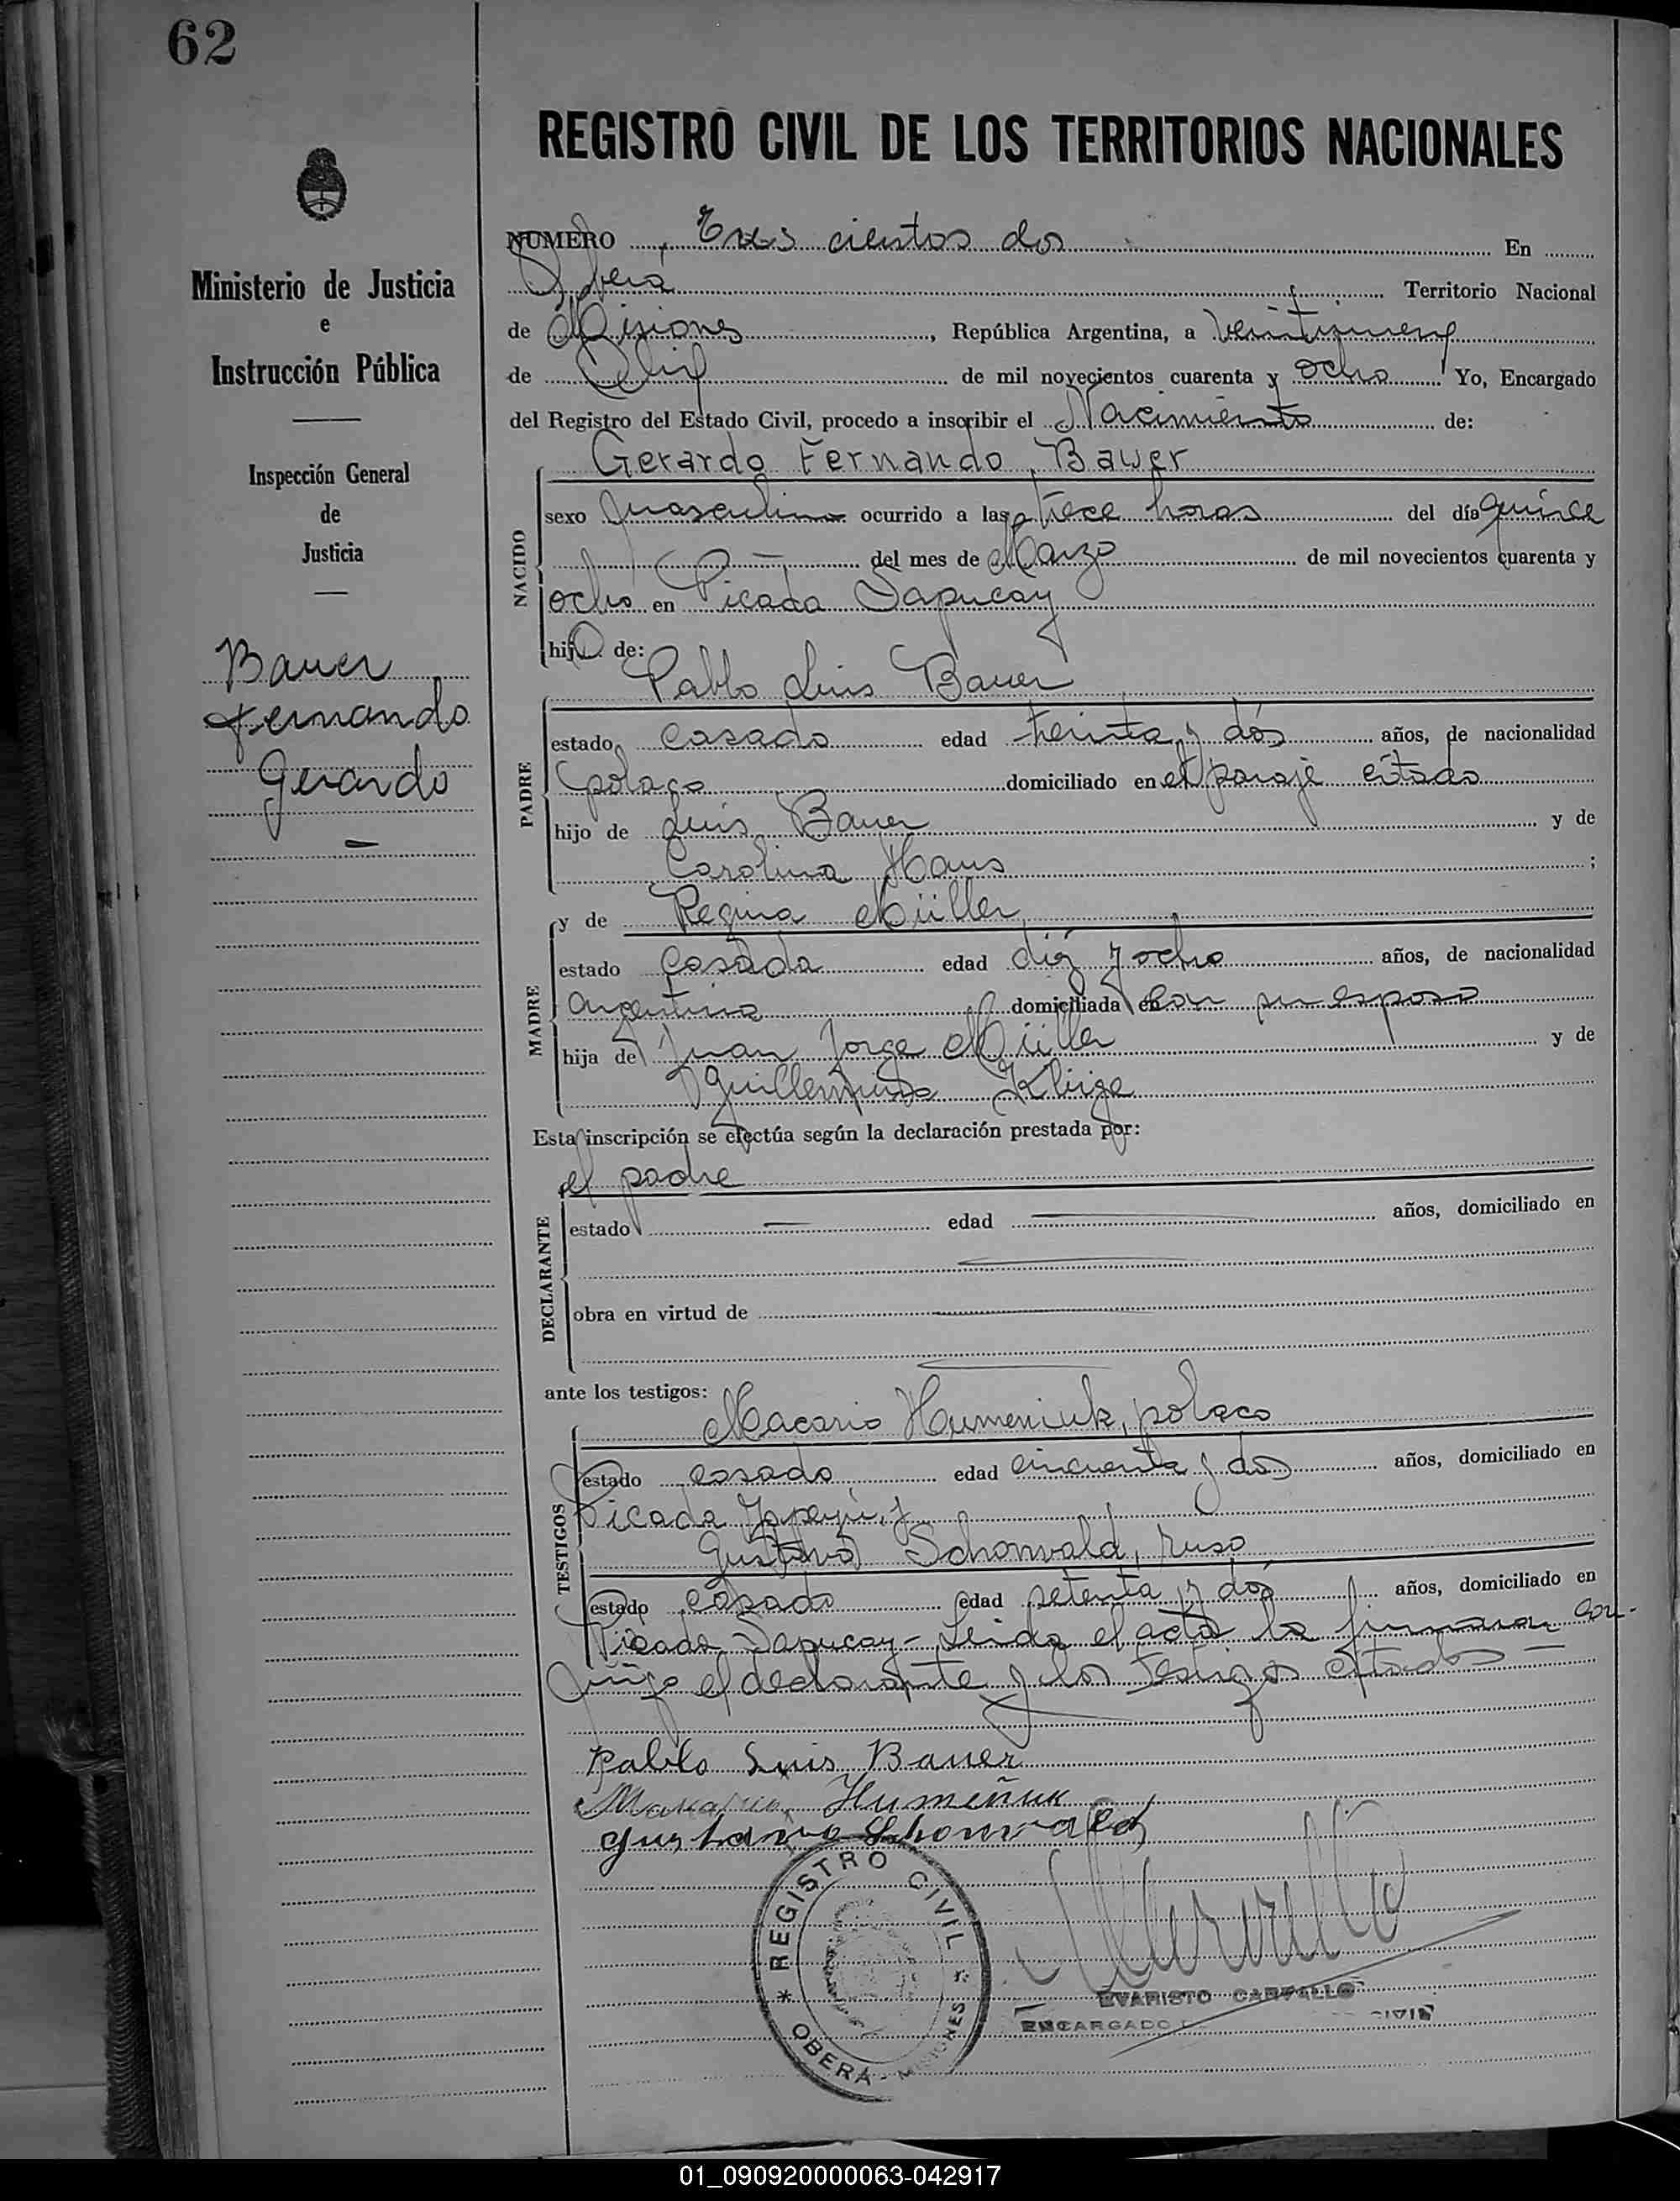 62
REGISTRO CIVIL DE LOS TERRITORIOS NACIONALES
Ministerio de Justicia
e
Instrucción Pública
Inspección General
de
Justicia
Bauer
Fernando
Gerardo
NUMERO Tres cientos dos En
Oberá Territorio Nacional
de Misiones, República Argentina, a veintinueve
de Abril de mil novecientos cuarenta y ocho Yo, Encargado
del Registro del Estado Civil, procedo a inscribir el Nacimiento de:
Gerardo Fernando Bauer
NACIDO
sexo masculino ocurrido a las trece horas del día quince
del mes de Marzo de mil novecientos cuarenta y
ocho en Picada Sapucay
hijo de:
Pablo Luis Bauer
PADRE
estado casado edad treinta y dós años, de nacionalidad
polaco domiciliado en el paraje citado
hijo de Luis Bauer y de
Carolina Haus;
y de Regina Müller
MADRE
estado casada edad diez y ocho años, de nacionalidad
argentina domiciliada en con su esposo
hija de Juan Jorge Müller y de
Guillermina
Esta inscripción se efectúa según la declaración prestada por:
el padre
DECLARANTE
estado edad años, domiciliado en
obra en virtud de
ante los testigos:
Macario Humeniuk, polaco
TESTIGOS
estado casado edad cincuenta y dos años, domiciliado en
Picada Yapeyú, y
Gustavo Schonwald, ruso
estado casado edad setenta y dós años, domiciliado en
Picada Sapucay - Leida el acta la firman con-
migo el declarante y los testigos citados -
Pablo Luis Bauer
Humeñuk
Gustavo Schonwald
* REGISTRO CIVIL *
OBERÁ - MISIONES
EVARISTO CARVALLO
ENCARGADO CIVIL
01_090920000063-042917